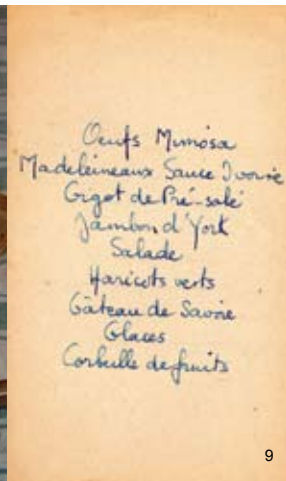 Oeufs Mimosa
Madeleineaux Sauce Ivoirie
Gigot de Pré-salé
Jambon d'York
Salade
Haricots verts
Gâteau de Savoie
Glaces
Corbeille de fruits
9